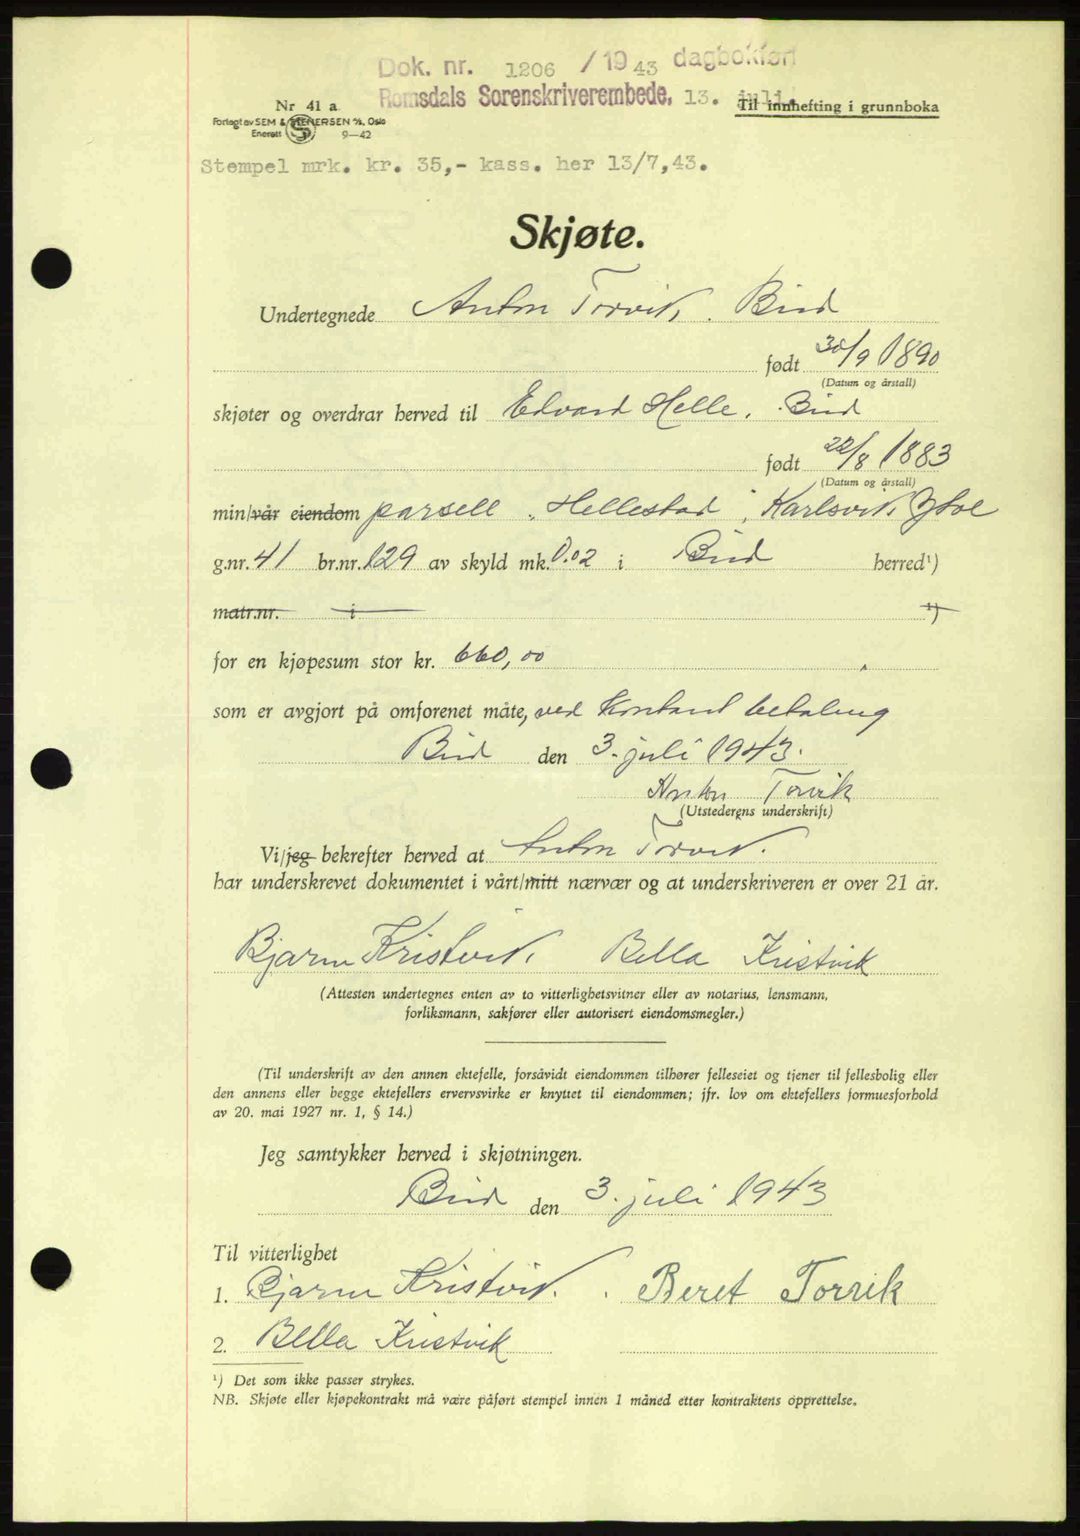 Dok. nr. 1206 / 19 43 dagbokført
Romsdals Sorenskriverembede, 13. juli.
Nr 41 a
Til innhefting i grunnboka
Forlagt av SEM & STENERSEN A/S, Oslo
Enerett S 9—42
Stempel mrk. kr. 35,- kass. her 13/7,43.
Skjøte.
Undertegnede Anton Torvik, Bud
født 30/9 1890
(Datum og årstall)
skjøter og overdrar herved til Edvard Helle, Bud
født 22/8 1883
(Datum og årstall)
min/vår eiendom parsell „Hellestad", Karlsvik,
g.nr. 41 br.nr. 129 av skyld mk. 0.02 i Bud herred¹)
matr.nr. i ¹)
for en kjøpesum stor kr. 660,00
som er avgjort på omforenet måte, ved kontant betaling
Bud den 3. juli 1943.
Anton Torvik
(Utstederens underskrift)
Vi/jeg bekrefter herved at Anton Torvik.
har underskrevet dokumentet i vårt/mitt nærvær og at underskriveren er over 21 år.
Bjarne Kristvik, Bella Kristvik
(Attesten undertegnes enten av to vitterlighetsvitner eller av notarius, lensmann,
forliksmann, sakfører eller autorisert eiendomsmegler.)
(Til underskrift av den annen ektefelle, forsåvidt eiendommen tilhører felleseiet og tjener til fellesbolig eller
den annens eller begge ektefellers ervervsvirke er knyttet til eiendommen; jfr. lov om ektefellers formuesforhold
av 20. mai 1927 nr. 1, § 14.)
Jeg samtykker herved i skjøtningen.
Bud den 3. juli 1943
Til vitterlighet
1. Bjarne Kristvik. Beret Torvik
2. Bella Kristvik
¹) Det som ikke passer strykes.
NB. Skjøte eller kjøpekontrakt må være påført stempel innen 1 måned etter kontraktens opprettelse.